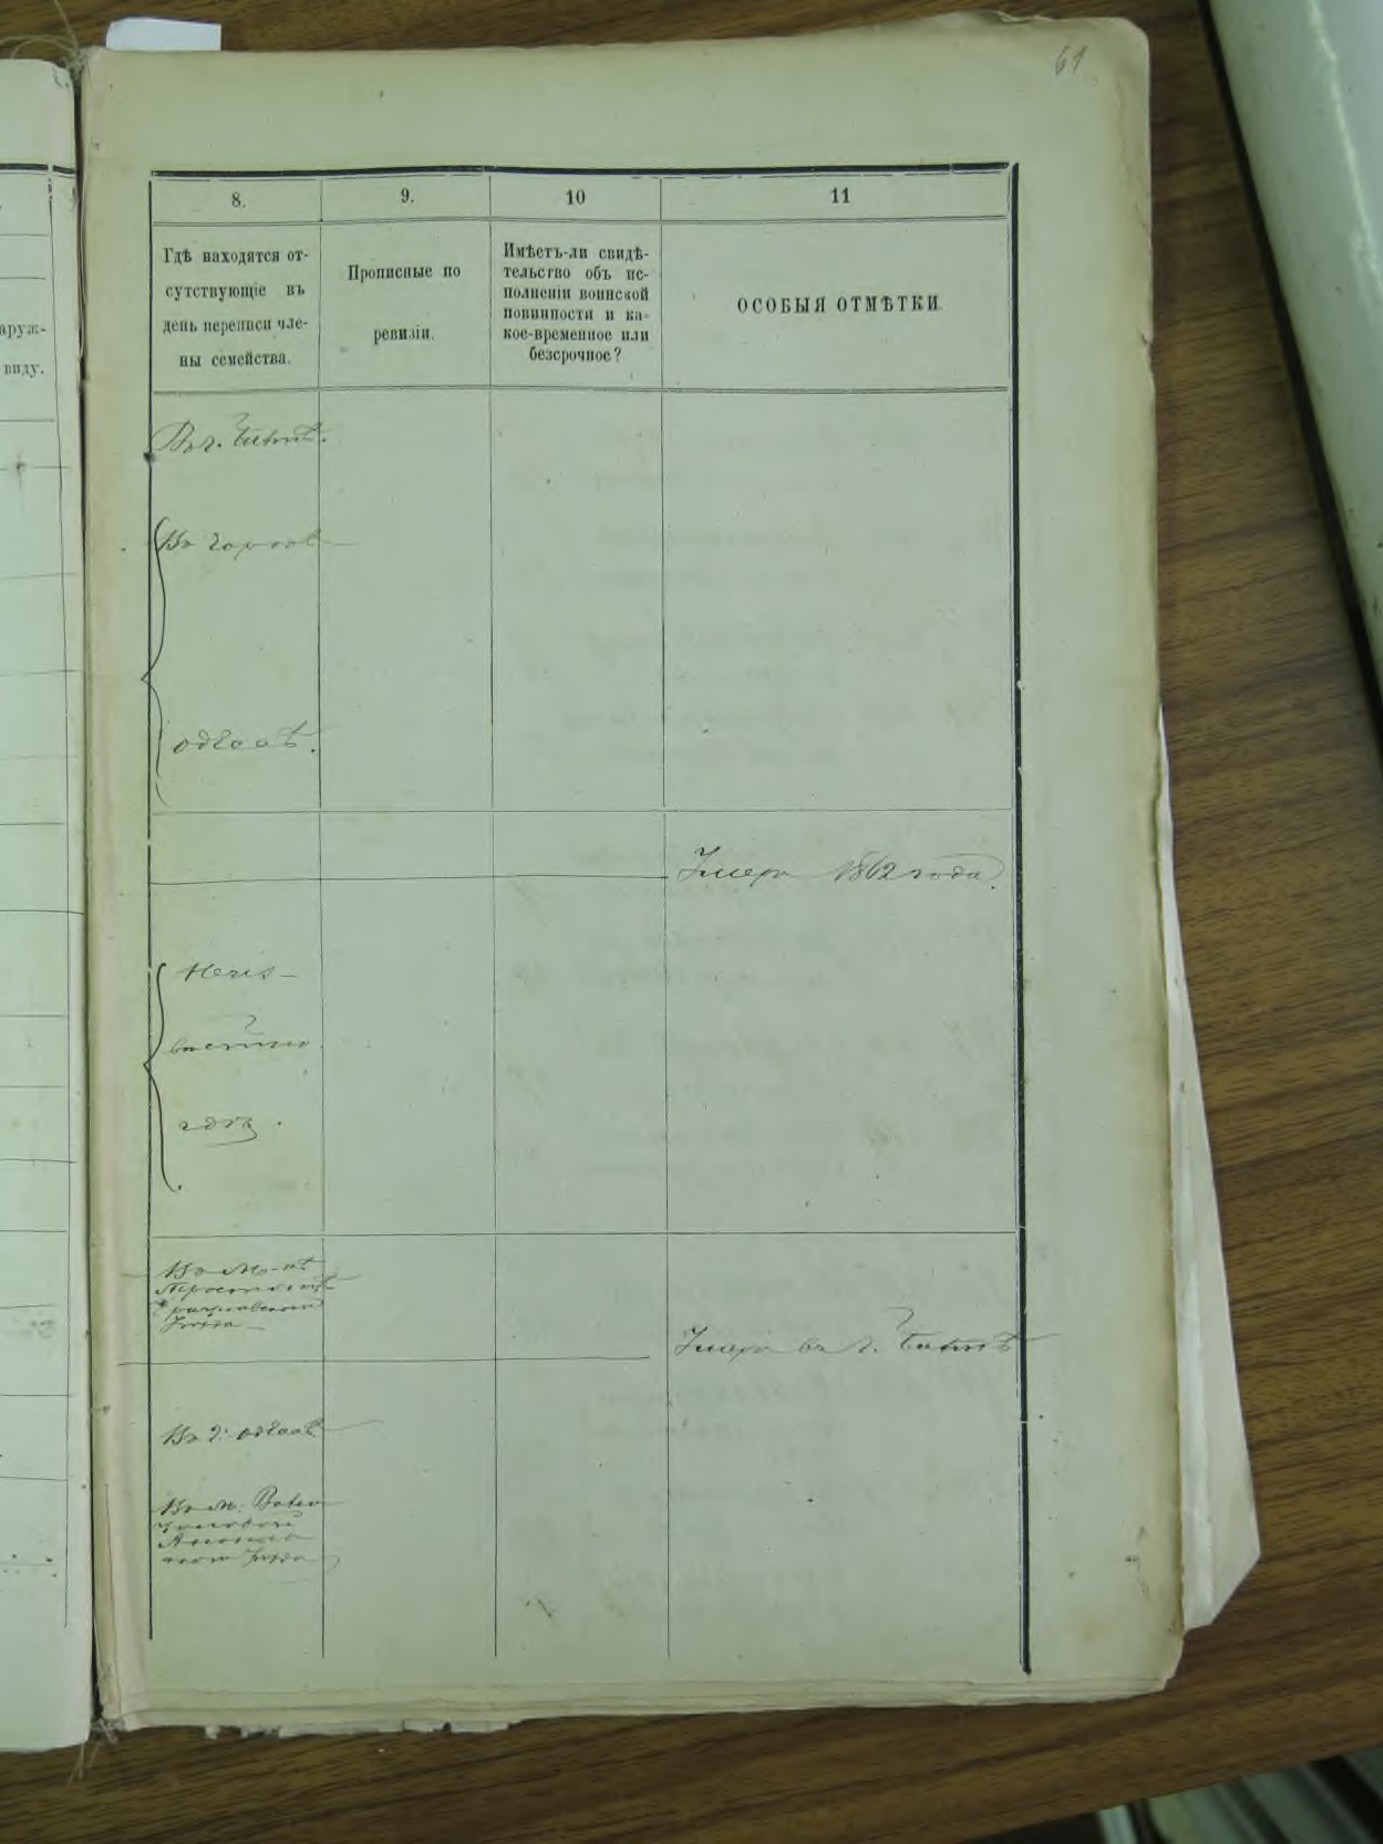 61
8.
9.
10
11
Гдѣ находятся от-
сутствующіе въ
день переписи чле-
ны семейства.
Прописные по
ревизіи.
Имѣетъ-ли свидѣ-
тельство объ ис-
полненіи воинской
повинности и ка-
кое-временное или
безсрочное?
ОСОБЫЯ ОТМѢТКИ.
аруж-
виду.
Въ г.
Въ городѣ
Одессѣ.
Умеръ 1862 года.
Неиз-
вѣстно
гдѣ.
Въ М-кѣ
уѣзда
Умеръ въ г.
Въ г. Одессѣ
Въ м.
уѣзда